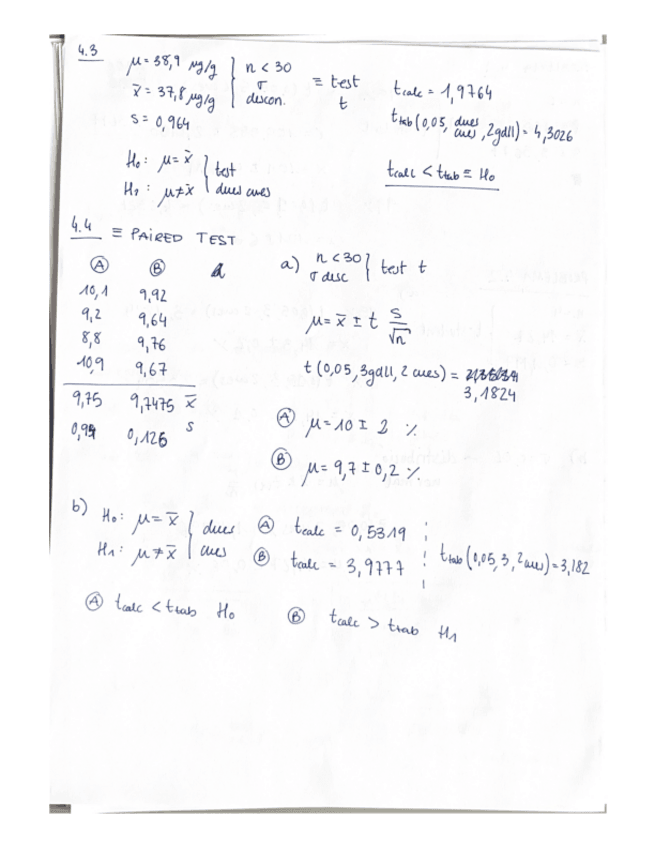 4.3
μ = 38,9 µg/g
x̄ = 37,8 µg/g
s = 0,964
n < 30
σ descon.
≡ test t
tcalc = 1,9764
ttab (0,05, dues cues, 2gdll) = 4,3026
H₀: μ = x̄
H₁: μ ≠ x̄
test dues cues
tcalc < ttab ≡ H₀
4.4 ≡ PAIRED TEST
Ⓐ Ⓑ d
10,1 9,92
9,2 9,64
8,8 9,76
10,9 9,67
9,75 9,7475 x̄
0,94 0,126 s
a) n < 30
σ desc
test t
μ = x̄ ± t s/√n
t (0,05, 3gdll, 2 cues) =
3,1824
Ⓐ μ = 10 ± 2 %
Ⓑ μ = 9,7 ± 0,2 %
b) H₀: μ = x̄
H₁: μ ≠ x̄
dues cues
Ⓐ tcalc = 0,5319
Ⓑ tcalc = 3,9777
ttab (0,05, 3, 2 cues) = 3,182
Ⓐ tcalc < ttab H₀
Ⓑ tcalc > ttab H₁